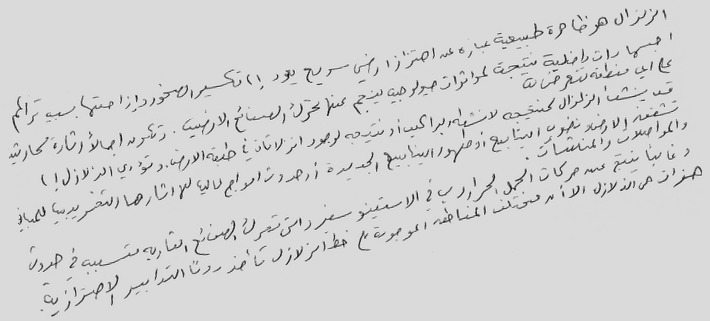 الزلزال هو ظاهرة طبيعية عبارة عن اهتزاز أرضي سريع يعود إلى تكسر الصخور وإزاحتها بسبب تراكم
اجهادات داخلية نتيجة لمؤثرات جيولوجية ينجم عنها تحرك الصفائح الأرضية. وتكون اجمالا آثاره كارثية
على أي منطقة تتعرض له
قد ينشأ الزلزال كنتيجة لأنشطة البراكين أو نتيجة لوجود انزلاقات في طبقة الأرض. وتؤدي الزلازل إلى
تشقق الأرض ونضوب الينابيع أو ظهور الينابيع الجديدة أو حدوث أمواج عالية اذا آثارها التخريبية للمباني
والمواصلات والمنشآت
وغالبا ينتج عن حركات الحمل الحراري في الاستينوسفير والتي تحرك الصفائح القارية متسببة في حدوث
هزات هي الزلازل الا أن مختلف المناطق الموجودة على خط الزلازل تأخذ دوما التدابير الاحترازية.